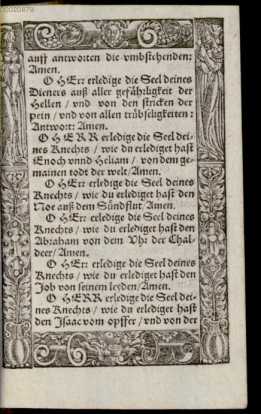 auff antworten die vmbstehenden:
Amen.
O HErr erledige die Seel deines
Dieners auß aller gefährligkeit der
Hellen / vnd von den stricken der
pein / vnd von allen trübseligkeiten:
Antwort: Amen.
O HERR erledige die Seel dei-
nes Knechts / wie du erlediget hast
Enoch vnnd Heliam / von dem ge-
mainen todt der welt / Amen.
O HErr erledige die Seel deines
Knechts / wie du erlediget hast den
Noe auß dem Sündflut Amen.
O HErr erledige die Seel deines
Knechts / wie du erlediget hast den
Abraham von dem Vhr der Chal-
deer / Amen.
O HErr erledige die Seel deines
Knechts / wie du erlediget hast den
Job von seinem leyden / Amen.
O HERR erledige die Seel dei-
nes Knechts / wie du erlediget hast
den Isaac vom opffer / vnd von der